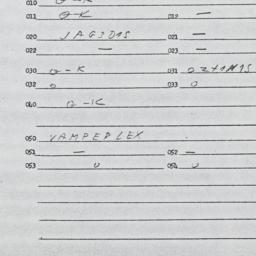 010 O-K
011 O-K 012 —
020 JAG3015 021 —
022 — 023 —
030 O-K 031
032 O 033 O
040 O-K
050 VAMPEDLEX
051 — 052 —
053 O 054 O